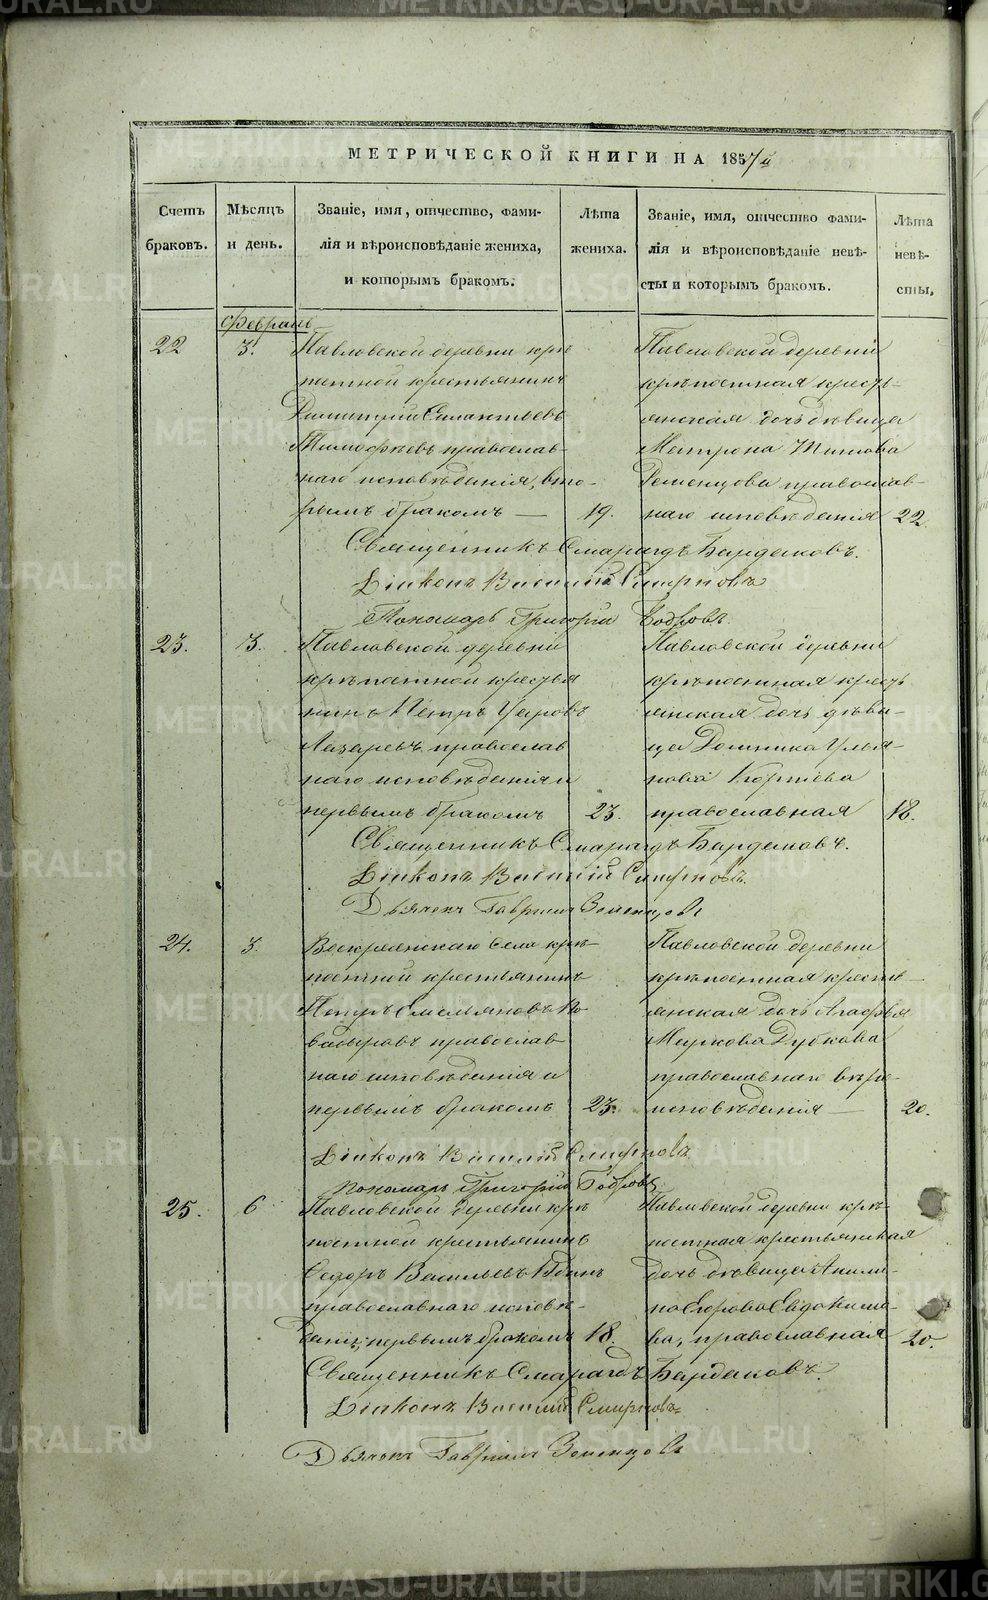 METRIKI.GASO-URAL.RU
МЕТРИЧЕСКОЙ КНИГИ НА 1857й
Счетъ браковъ.
Мѣсяцъ и день.
Званіе, имя, отчество, фами-
лія и вѣроисповѣданіе жениха,
и которымъ бракомъ.
Лѣта
жениха.
Званіе, имя, отчество фами-
лія и вѣроисповѣданіе невѣ-
сты и которымъ бракомъ.
Лѣта
невѣ-
сты,
Февраль
22
3.
Павловской деревни крѣ
постной крестьянинъ
Димитрій
Тимофѣевъ православ-
наго исповѣданія, вто-
рымъ бракомъ —
19.
Павловской деревни
крѣпостная кресть-
янская дочь дѣвица
Матрона Титова
Деменцова православ-
наго исповѣданія
22
Священникъ Смарагдъ Бардаковъ.
Діаконъ Василій Смирновъ
Пономарь Григорій Бобровъ
23.
3.
Павловской деревни
крѣпостной крестья
нинъ Петръ Уаровъ
Лазаревъ православ
наго исповѣданія и
первымъ бракомъ
23.
Павловской деревни
крѣпостная кресть
янская дочь дѣви-
ца Домника Улья-
нова
православная
18.
Священникъ Смарагдъ Бардаковъ.
Діаконъ Василій Смирновъ.
Дьячекъ Гавриилъ Земенцовъ
24.
3.
Воскресенскаго села крѣ-
постной крестьянинъ
Петръ Емельяновъ
православ
наго исповѣданія и
первымъ бракомъ
23.
Павловской деревни
крѣпостная кресть
янская дочь Агафья
Маркова Дубкова
православнаго вѣро-
исповѣданія —
20.
Діаконъ Василій Смирновъ
Пономарь Григорій Бобровъ
25.
6
Павловской деревни крѣ
постной крестьянинъ
Ѳедоръ Васильевъ
православнаго исповѣ-
данія, первымъ бракомъ
18.
Павловской деревни крѣ-
постная крестьянская
дочь дѣвица Акили-
на Егорова Евдокимо-
ва, православная
20.
Священникъ Смарагдъ Бардаковъ.
Діаконъ Василій Смирновъ
Дьячекъ Гавриилъ Земенцовъ